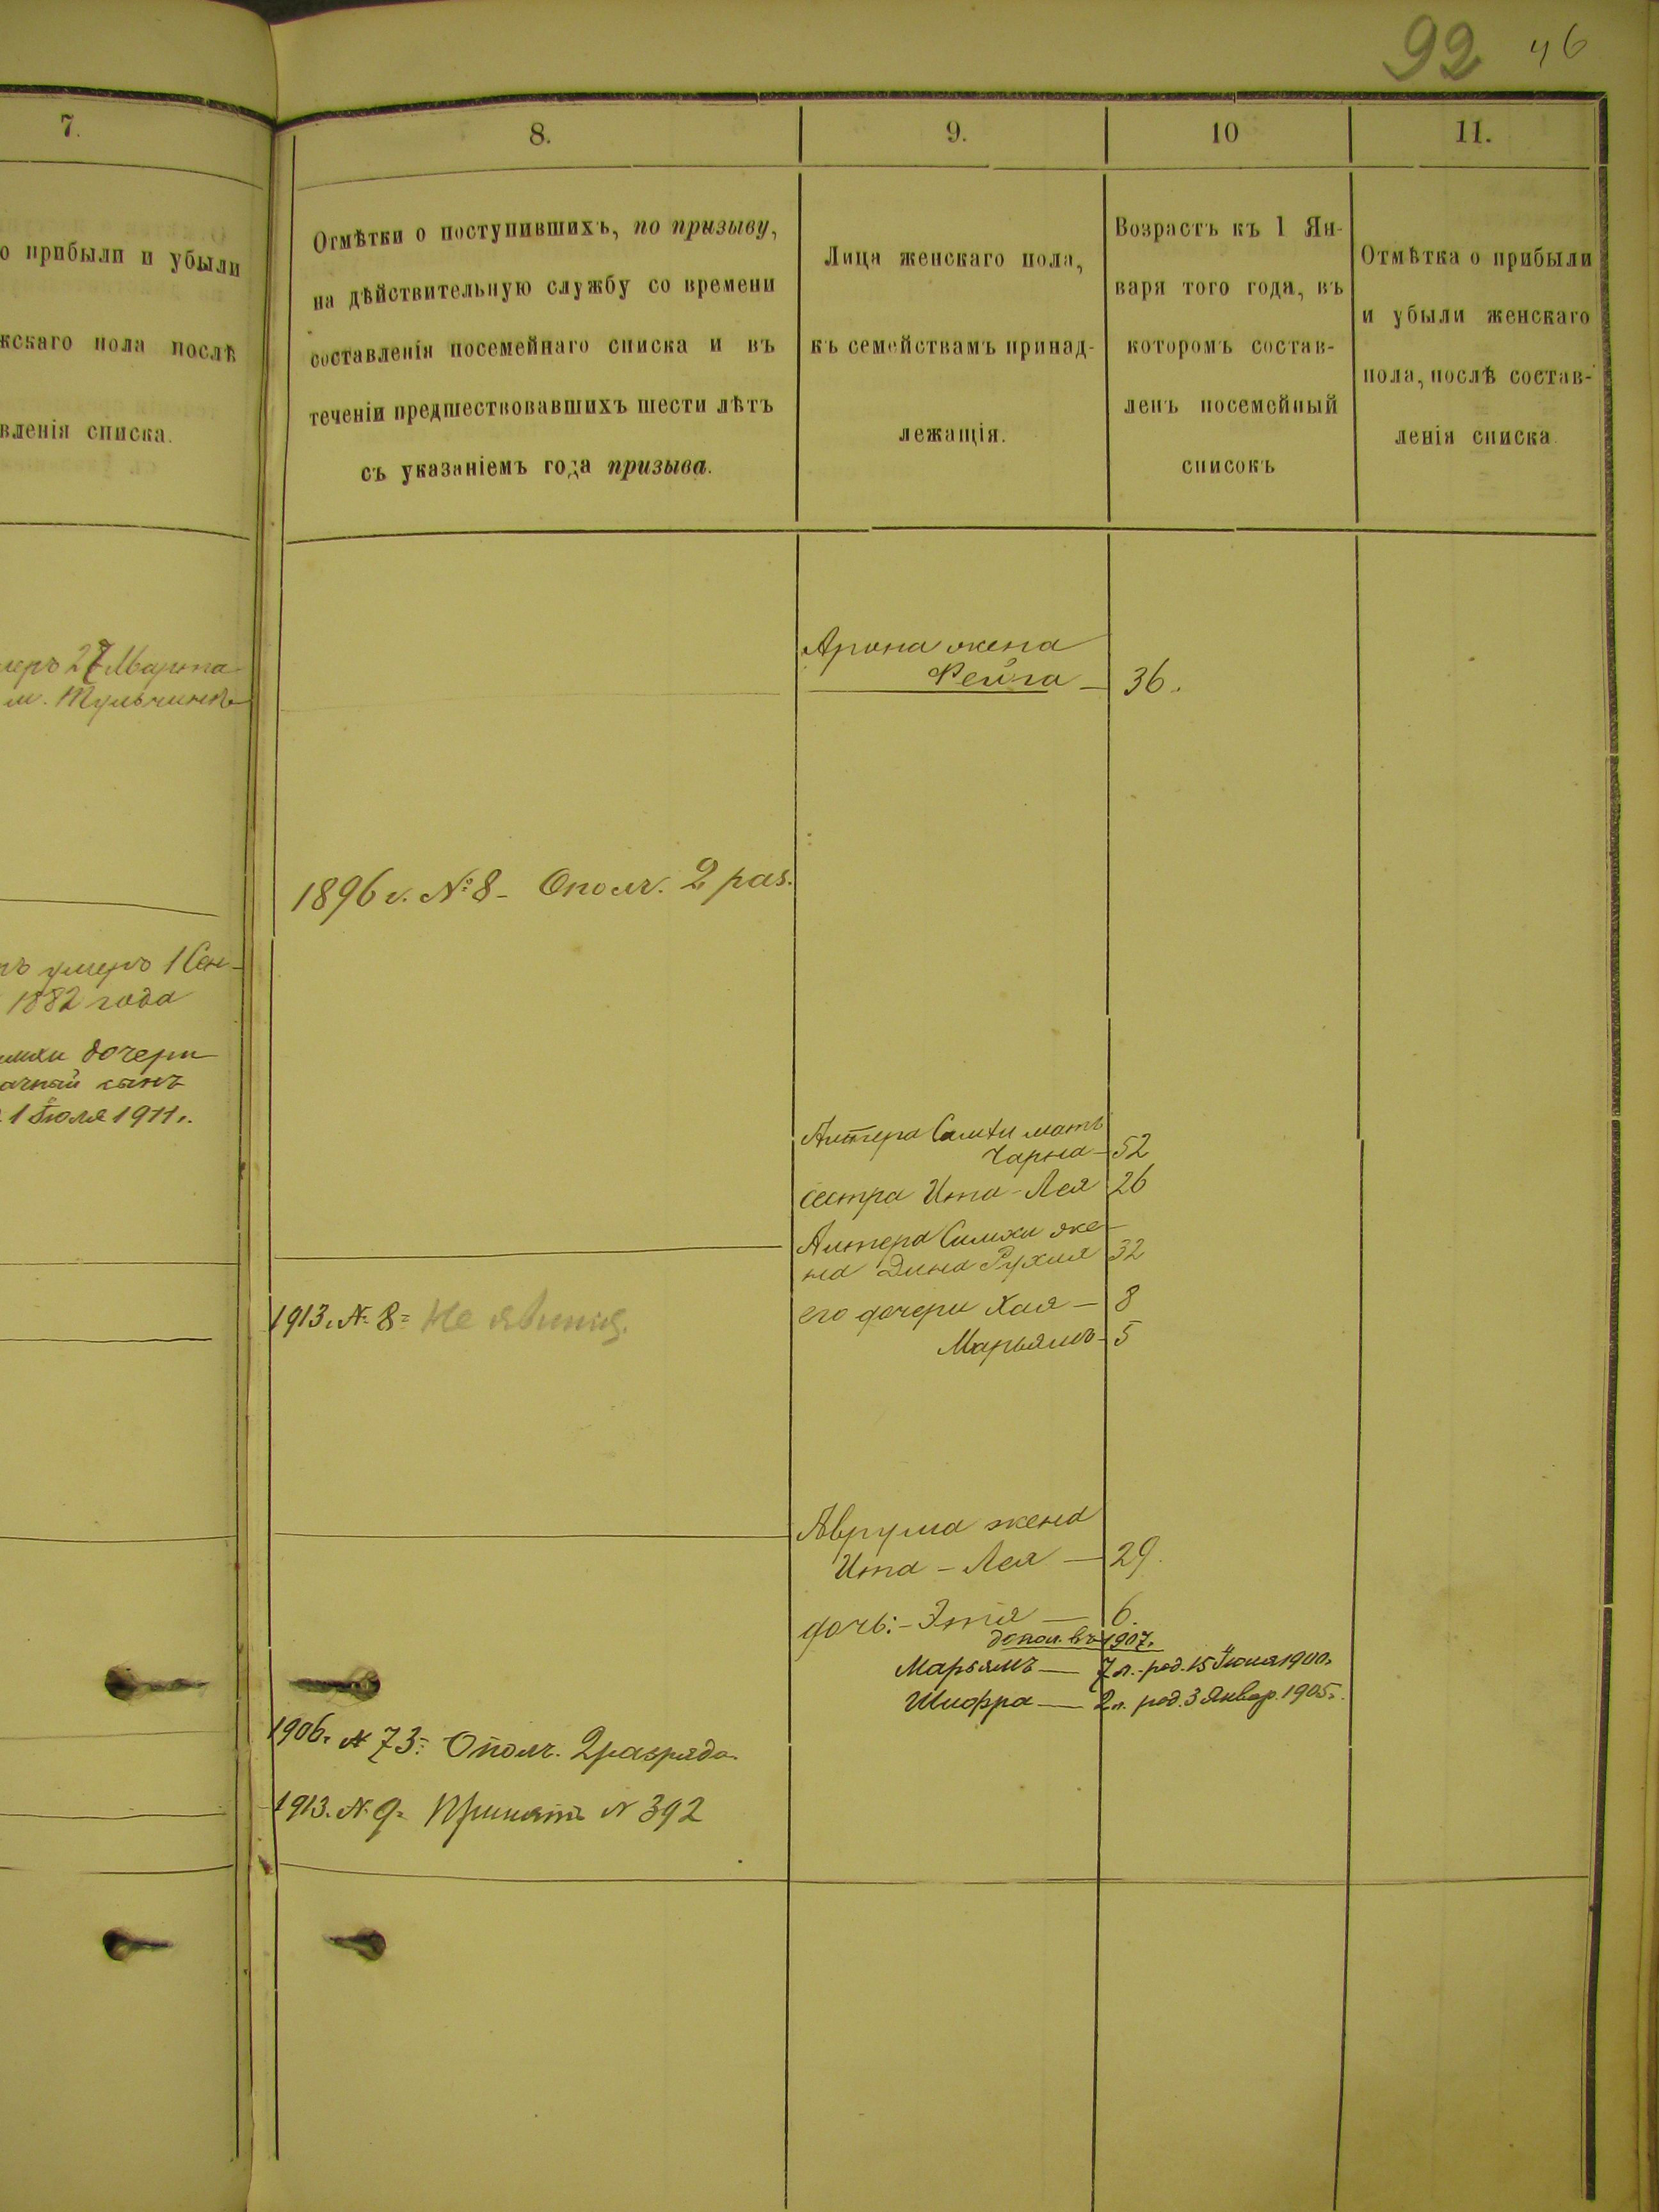 92 46
7.
о прибыли и убыли
жскаго пола послѣ
вленія списка.
меръ 27 Марта
м. Тульчинѣ
умеръ 1 Сен-
1882 года
дочери
сынъ
1 Іюля 1911 г.
8.
Отмѣтки о поступившихъ, по призыву,
на дѣйствительную службу со времени
составленія посемейнаго списка и въ
теченіи предшествовавшихъ шести лѣтъ
съ указаніемъ года призыва.
1896 г. № 8 - Ополч. 2 раз.
1913 г. № 8 = Не явился.
1906 г. № 73 = Ополч. 2 разряда.
1913 г. № 9 = Принятъ № 392
9.
Лица женскаго пола,
къ семействамъ принад-
лежащія.
10
Возрастъ къ 1 Ян-
варя того года, въ
которомъ состав-
ленъ посемейный
списокъ
11.
Отмѣтка о прибыли
и убыли женскаго
пола, послѣ состав-
ленія списка.
Арона жена
Фейга — 36.
Алтера Симхи мать
Чарна — 52
сестра Ита-Лея 26
Алтера Симхи же-
на Дина Рухля 32
его дочери Хая — 8
Марьямъ — 5
Аврума жена
Ита-Лея — 29.
дочь: - Этля — 6.
допол. въ 1907 г.
Марьямъ — 7 л. - род. 15 Іюня 1900 г.
Шифра — 2 л. род. 3 Январ. 1905 г.